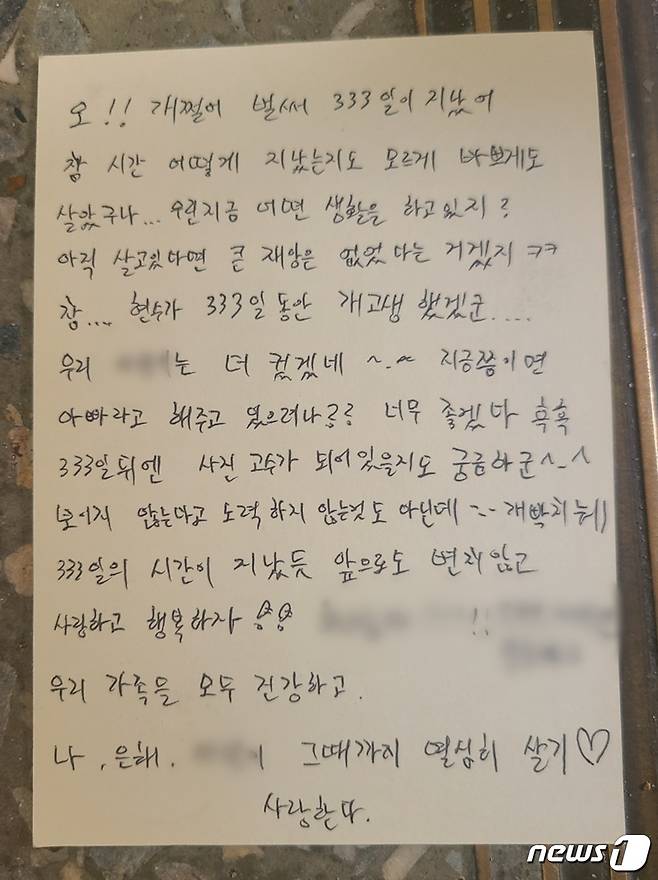 오!! 개쩔어 벌써 333일이 지났어
참 시간 어떻게 지났는지도 모르게 바쁘게도
살았구나... 우린지금 어떤 생활을 하고있지?
아직 살고있다면 큰 재앙은 없었다는 거겠지 ㅋㅋ
참... 현수가 333일동안 개고생 했겠군.....
우리 는 더 컸겠네 ^.^ 지금쯤이면
아빠라고 해주고 있으려나?? 너무 좋겠다 흑흑
333일뒤엔 사진 고수가 되어있을지도 궁금하군^-^
보이지 않는다고 노력하지 않는것도 아닌데
333일의 시간이 지났듯 앞으로도 변치않고
사랑하고 행복하자 !!
우리 가족들 모두 건강하고.
나, 은해. 그때까지 열심히 살기♡
사랑한다.
news1